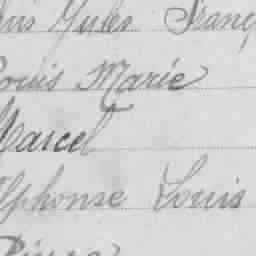 Jules Franç
Louis Marie
Marcel
Alphonse Louis